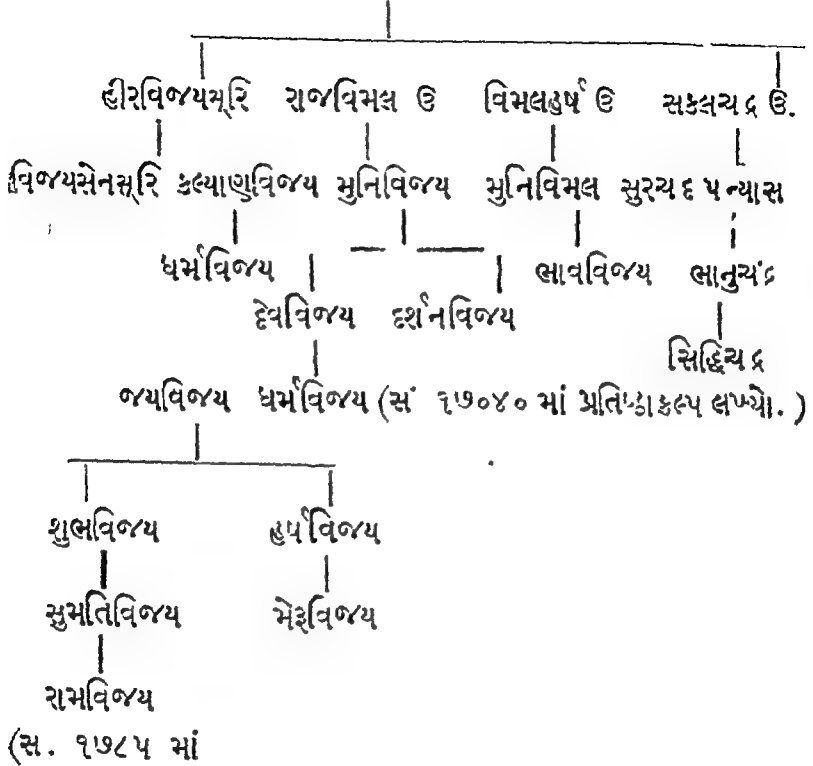 હીરવિજયસૂરિ રાજવિમલ ઉ વિમલહર્ષ ઉ સકલચદ્ર ઉ.
વિજયસેનસૂરિ કલ્યાણવિજય મુનિવિજય મુનિવિમલ સુરચદ પન્યાસ
ધર્મવિજય ભાવવિજય ભાનુચંદ્ર
દેવવિજય દર્શનવિજય
સિદ્ધિચદ્ર
જયવિજય ધર્મવિજય (સં ૧૭૦૪૦ માં પ્રતિષ્ઠાકલ્પ લખ્યો. )
શુભવિજય હર્ષવિજય
સુમતિવિજય મેરૂવિજય
રામવિજય
(સ. ૧૭૮૫ માં